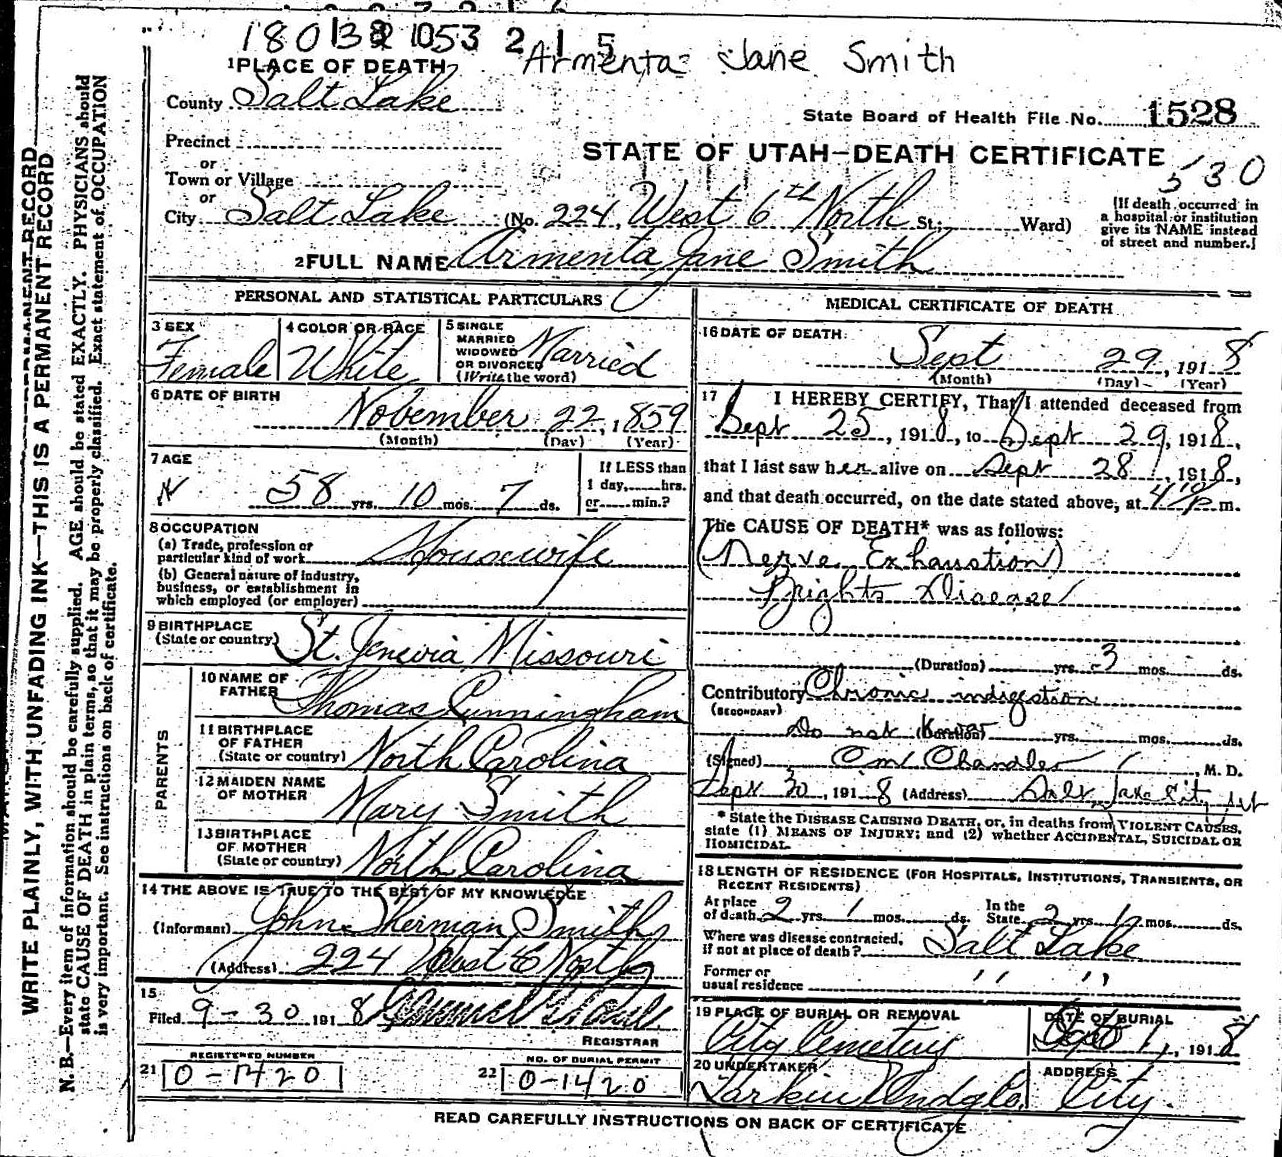 1PLACE OF DEATH
Armenta Jane Smith
County Salt Lake
State Board of Health File No. 1528
Precinct
STATE OF UTAH—DEATH CERTIFICATE
530
or
Town or Village
or
City Salt Lake (No. 224, West 6th North St.; Ward)
(If death occurred in
a hospital or institution
give its NAME instead
of street and number.)
2FULL NAME Armenta Jane Smith
PERSONAL AND STATISTICAL PARTICULARS
3 SEX Female
4 COLOR OR RACE White
5 SINGLE
MARRIED
WIDOWED
OR DIVORCED
(Write the word) Married
6 DATE OF BIRTH
November 22, 1859
(Month) (Day) (Year)
7 AGE
58 yrs. 10 mos. 7 ds.
If LESS than
1 day, hrs.
or min.?
8 OCCUPATION
(a) Trade, profession or
particular kind of work Housewife
(b) General nature of industry,
business, or establishment in
which employed (or employer)
9 BIRTHPLACE
(State or country) St. Jenevia Missouri
PARENTS
10 NAME OF
FATHER Thomas Cunningham
11 BIRTHPLACE
OF FATHER
(State or country) North Carolina
12 MAIDEN NAME
OF MOTHER Mary Smith
13 BIRTHPLACE
OF MOTHER
(State or country) North Carolina
14 THE ABOVE IS TRUE TO THE BEST OF MY KNOWLEDGE
(Informant) John Sherman Smith
(Address) 224 West 6 North
15
Filed 9-30 1918
REGISTRAR
REGISTERED NUMBER
21 0-1420
NO. OF BURIAL PERMIT
22 0-1420
MEDICAL CERTIFICATE OF DEATH
16 DATE OF DEATH
Sept 29, 1918
(Month) (Day) (Year)
17 I HEREBY CERTIFY, That I attended deceased from
Sept 25, 1918, to Sept 29, 1918,
that I last saw her alive on Sept 28, 1918,
and that death occurred, on the date stated above, at m.
The CAUSE OF DEATH* was as follows:
(Nerve Exhaustion)
Brights Disease
(Duration) yrs. 3 mos. ds.
Contributory Chronic indigestion
(SECONDARY)
Do not Know (Duration) yrs. mos. ds.
(Signed) Chandler, M. D.
Sept 30, 1918 (Address) Salt Lake City Ut
* State the DISEASE CAUSING DEATH, or, in deaths from VIOLENT CAUSES,
state (1) MEANS OF INJURY; and (2) whether ACCIDENTAL, SUICIDAL OR
HOMICIDAL.
18 LENGTH OF RESIDENCE (FOR HOSPITALS, INSTITUTIONS, TRANSIENTS, OR
RECENT RESIDENTS)
At place
of death 2 yrs. 1 mos. ds.
In the
State 2 yrs. mos. ds.
Where was disease contracted,
if not at place of death? Salt Lake
Former or
usual residence " "
19 PLACE OF BURIAL OR REMOVAL
City Cemetery
DATE OF BURIAL
1, 1918
20 UNDERTAKER
Larkin Undg Co.
ADDRESS
City.
READ CAREFULLY INSTRUCTIONS ON BACK OF CERTIFICATE
WRITE PLAINLY, WITH UNFADING INK—THIS IS A PERMANENT RECORD
N. B.—Every item of information should be carefully supplied. AGE should be stated EXACTLY. PHYSICIANS should
state CAUSE OF DEATH in plain terms, so that it may be properly classified. Exact statement of OCCUPATION
is very important. See instructions on back of certificate.